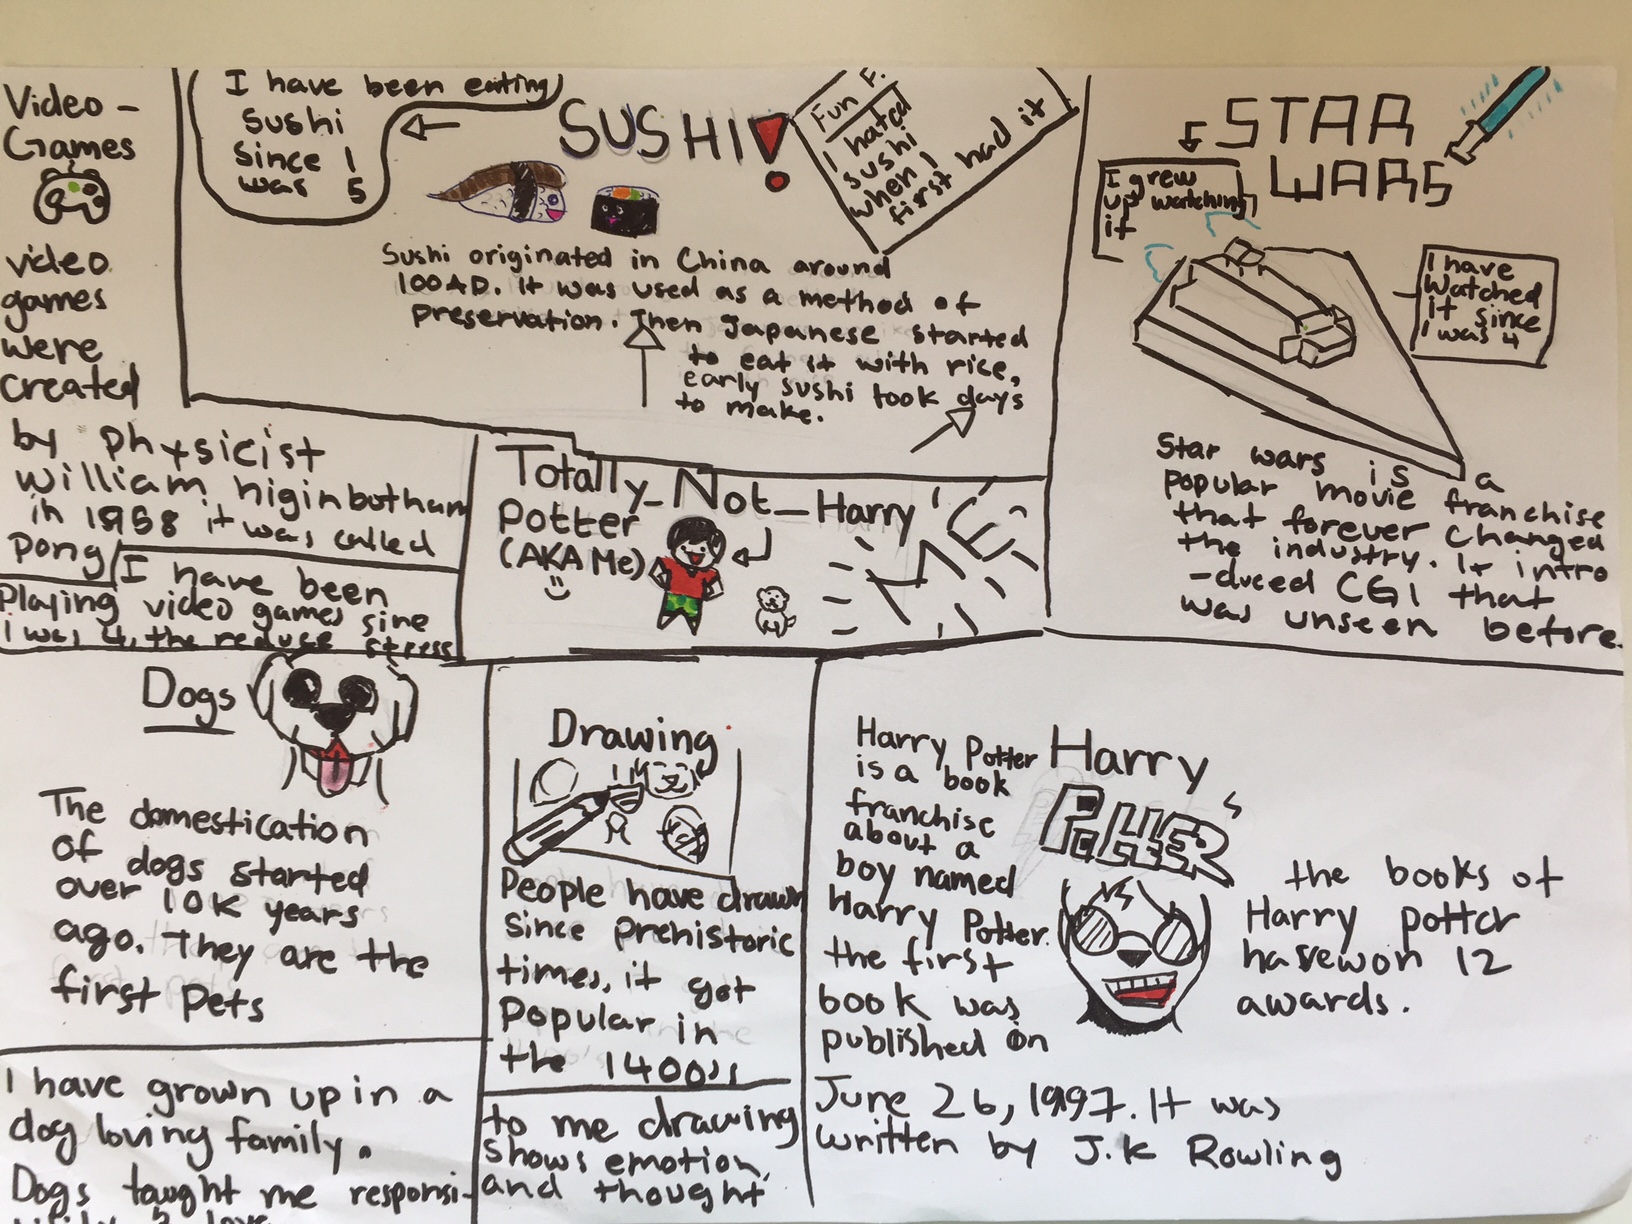 Video -
Games
video
games
were
created
by physicist
william higinbotham
in 1958 it was called
pong
I have been
Playing video games sine
I was 4, the reduse stress
I have been eating
sushi
since I
was 5
SUSHI!
Fun F.
I hated
sushi
when I
first had it
Sushi originated in China around
100AD. It was used as a method of
preservation. Then Japanese started
to eat it with rice,
early sushi took days
to make.
STAR
WARS
I grew
up watching
it
I have
watched
it since
I was 4
Star wars is a
popular movie franchise
that forever changed
the industry. It intro
-duced CGI that
was unseen before.
Totally_Not_Harry
Potter
(AKA Me)
ME
Dogs
The domestication
of dogs started
over 10K years
ago. They are the
first pets
I have grown up in a
dog loving family.
Dogs taught me responsi-
Drawing
People have drawn
since prehistoric
times, it got
popular in
the 1400's
to me drawing
shows emotion,
and thought
Harry Potter
is a book
franchise
about a
boy named
Harry Potter.
the first
book was
published on
June 26, 1997. It was
written by J.K Rowling
Harry
POttER
the books of
Harry potter
have won 12
awards.